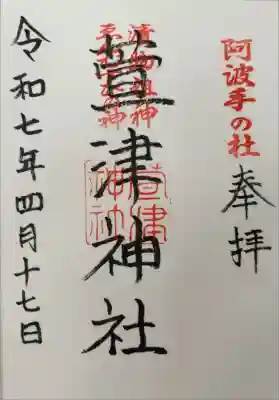 阿波手の杜
奉拝
漬物祖神
萱津神社
萱津神社
令和七年四月十七日